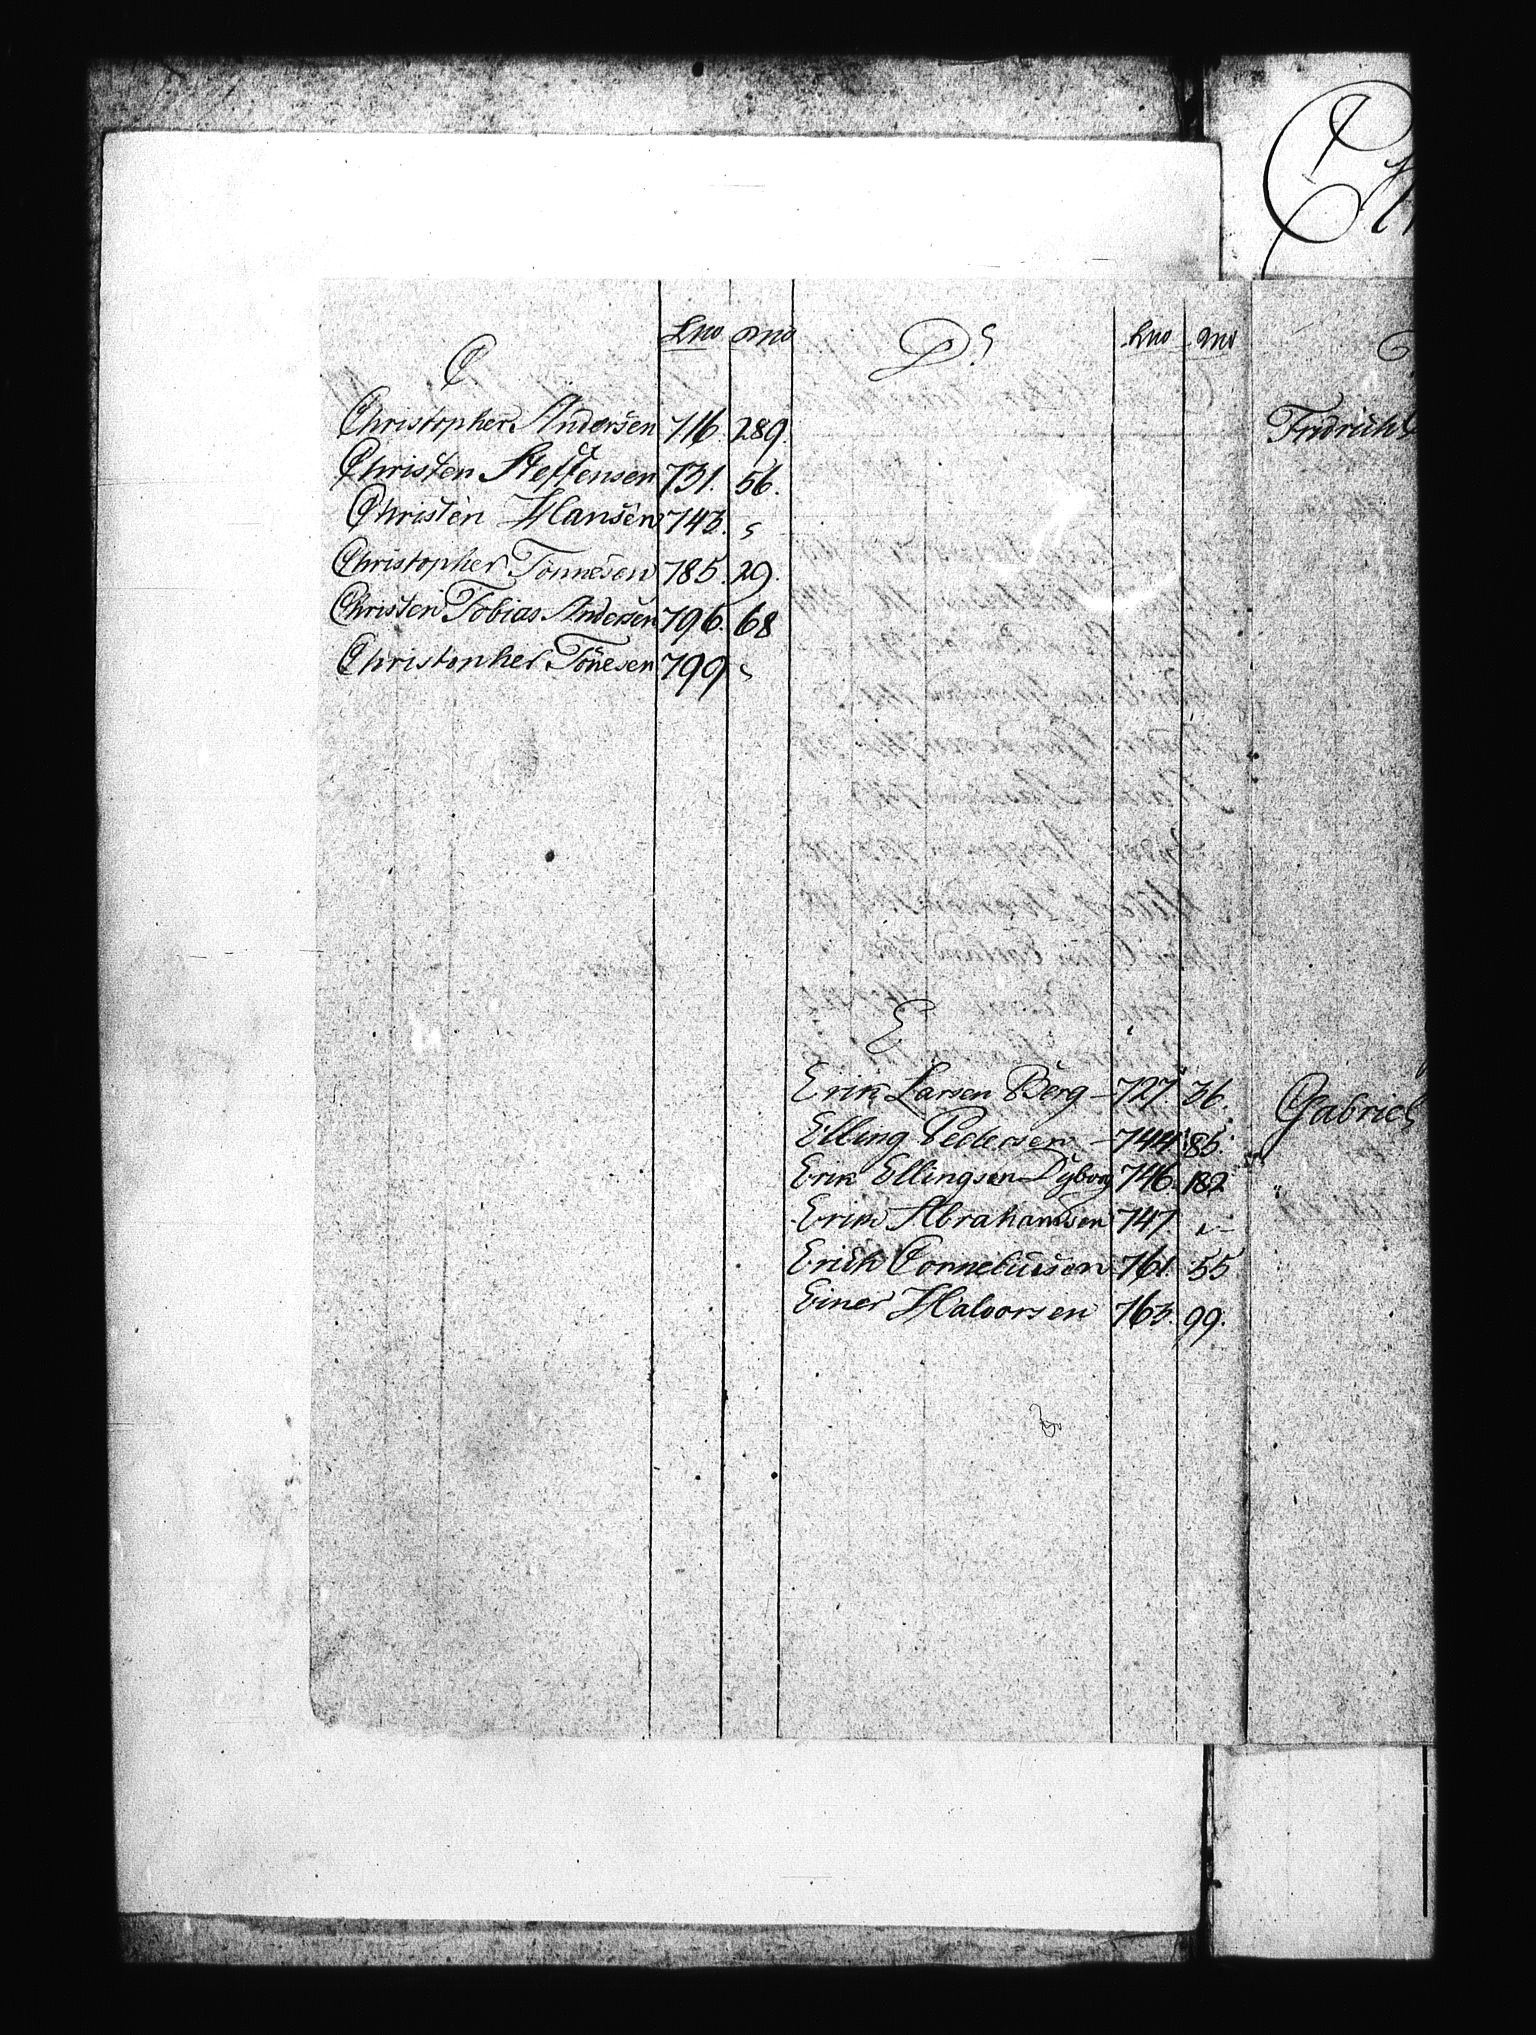 C
Lno Ano
Christopher Andersen 716. 289.
Christen Steffensen 731. 56.
Christen Hansen 743. "
Christopher Tönnesen 785. 29.
Christen Tobias Andersen 796. 68
Christopher Tönesen 799 "
D.
Lno Ano
E
Erik Larsen Berg - 727. 36.
Elling Pedersen - 744. 85.
Erik Ellingsen Dyborg 746. 182
Erik Abrahamsen 747. "
Erich Corneliusen 761. 55
Einer Halvorsen 763. 99.
Fridrich
Gabriel